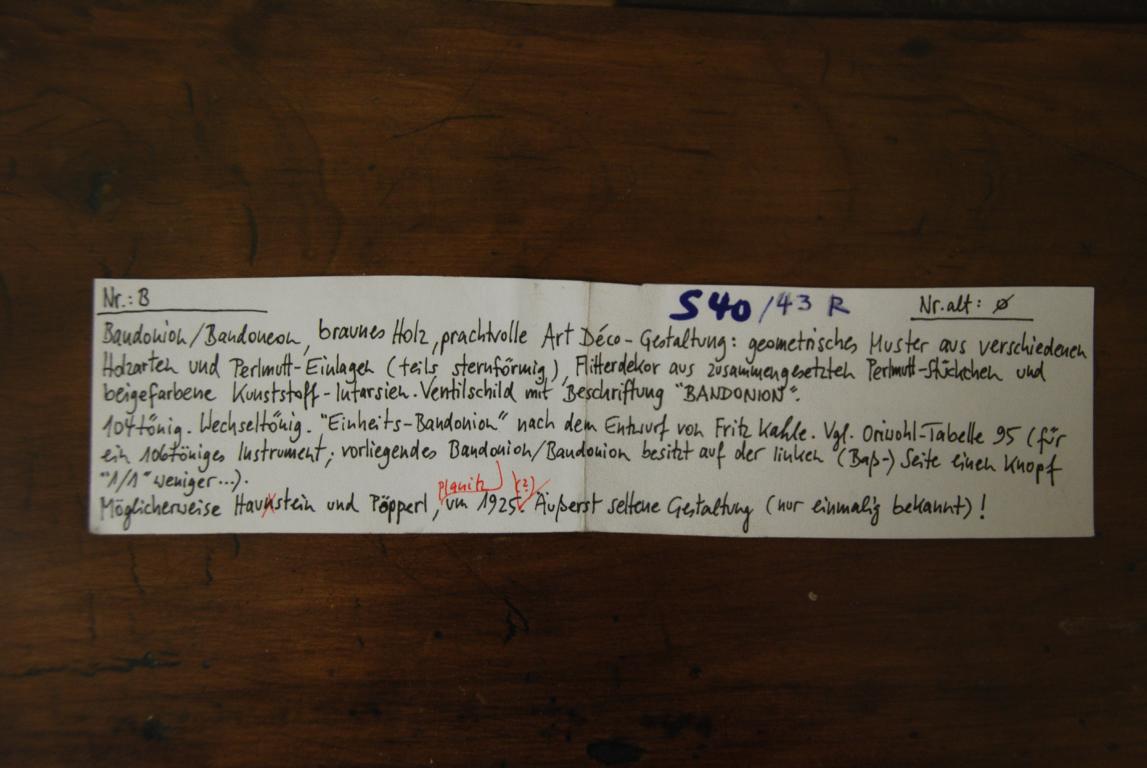 Nr.: B S40/43 R Nr. alt: ø
Bandonion/Bandoneon, braunes Holz, prachtvolle Art Déco-Gestaltung: geometrisches Muster aus verschiedenen
Holzarten und Perlmutt-Einlagen (teils sternförmig), Flitterdekor aus zusammengesetzten Perlmutt-Stückchen und
beigefarbene Kunststoff-Intarsien. Ventilschild mit Beschriftung "BANDONION".
104tönig. Wechseltönig. "Einheits-Bandonion" nach dem Entwurf von Fritz Kahle. Vgl. Oriwohl-Tabelle 95 (für
ein 106töniges Instrument; vorliegendes Bandonion/Bandonion besitzt auf der linken (Baß-) Seite einen Knopf
"1/1" weniger...).
Planitz (?)
Möglicherweise Haunstein und Pöpperl, um 1925. Äußerst seltene Gestaltung (nur einmalig bekannt)!